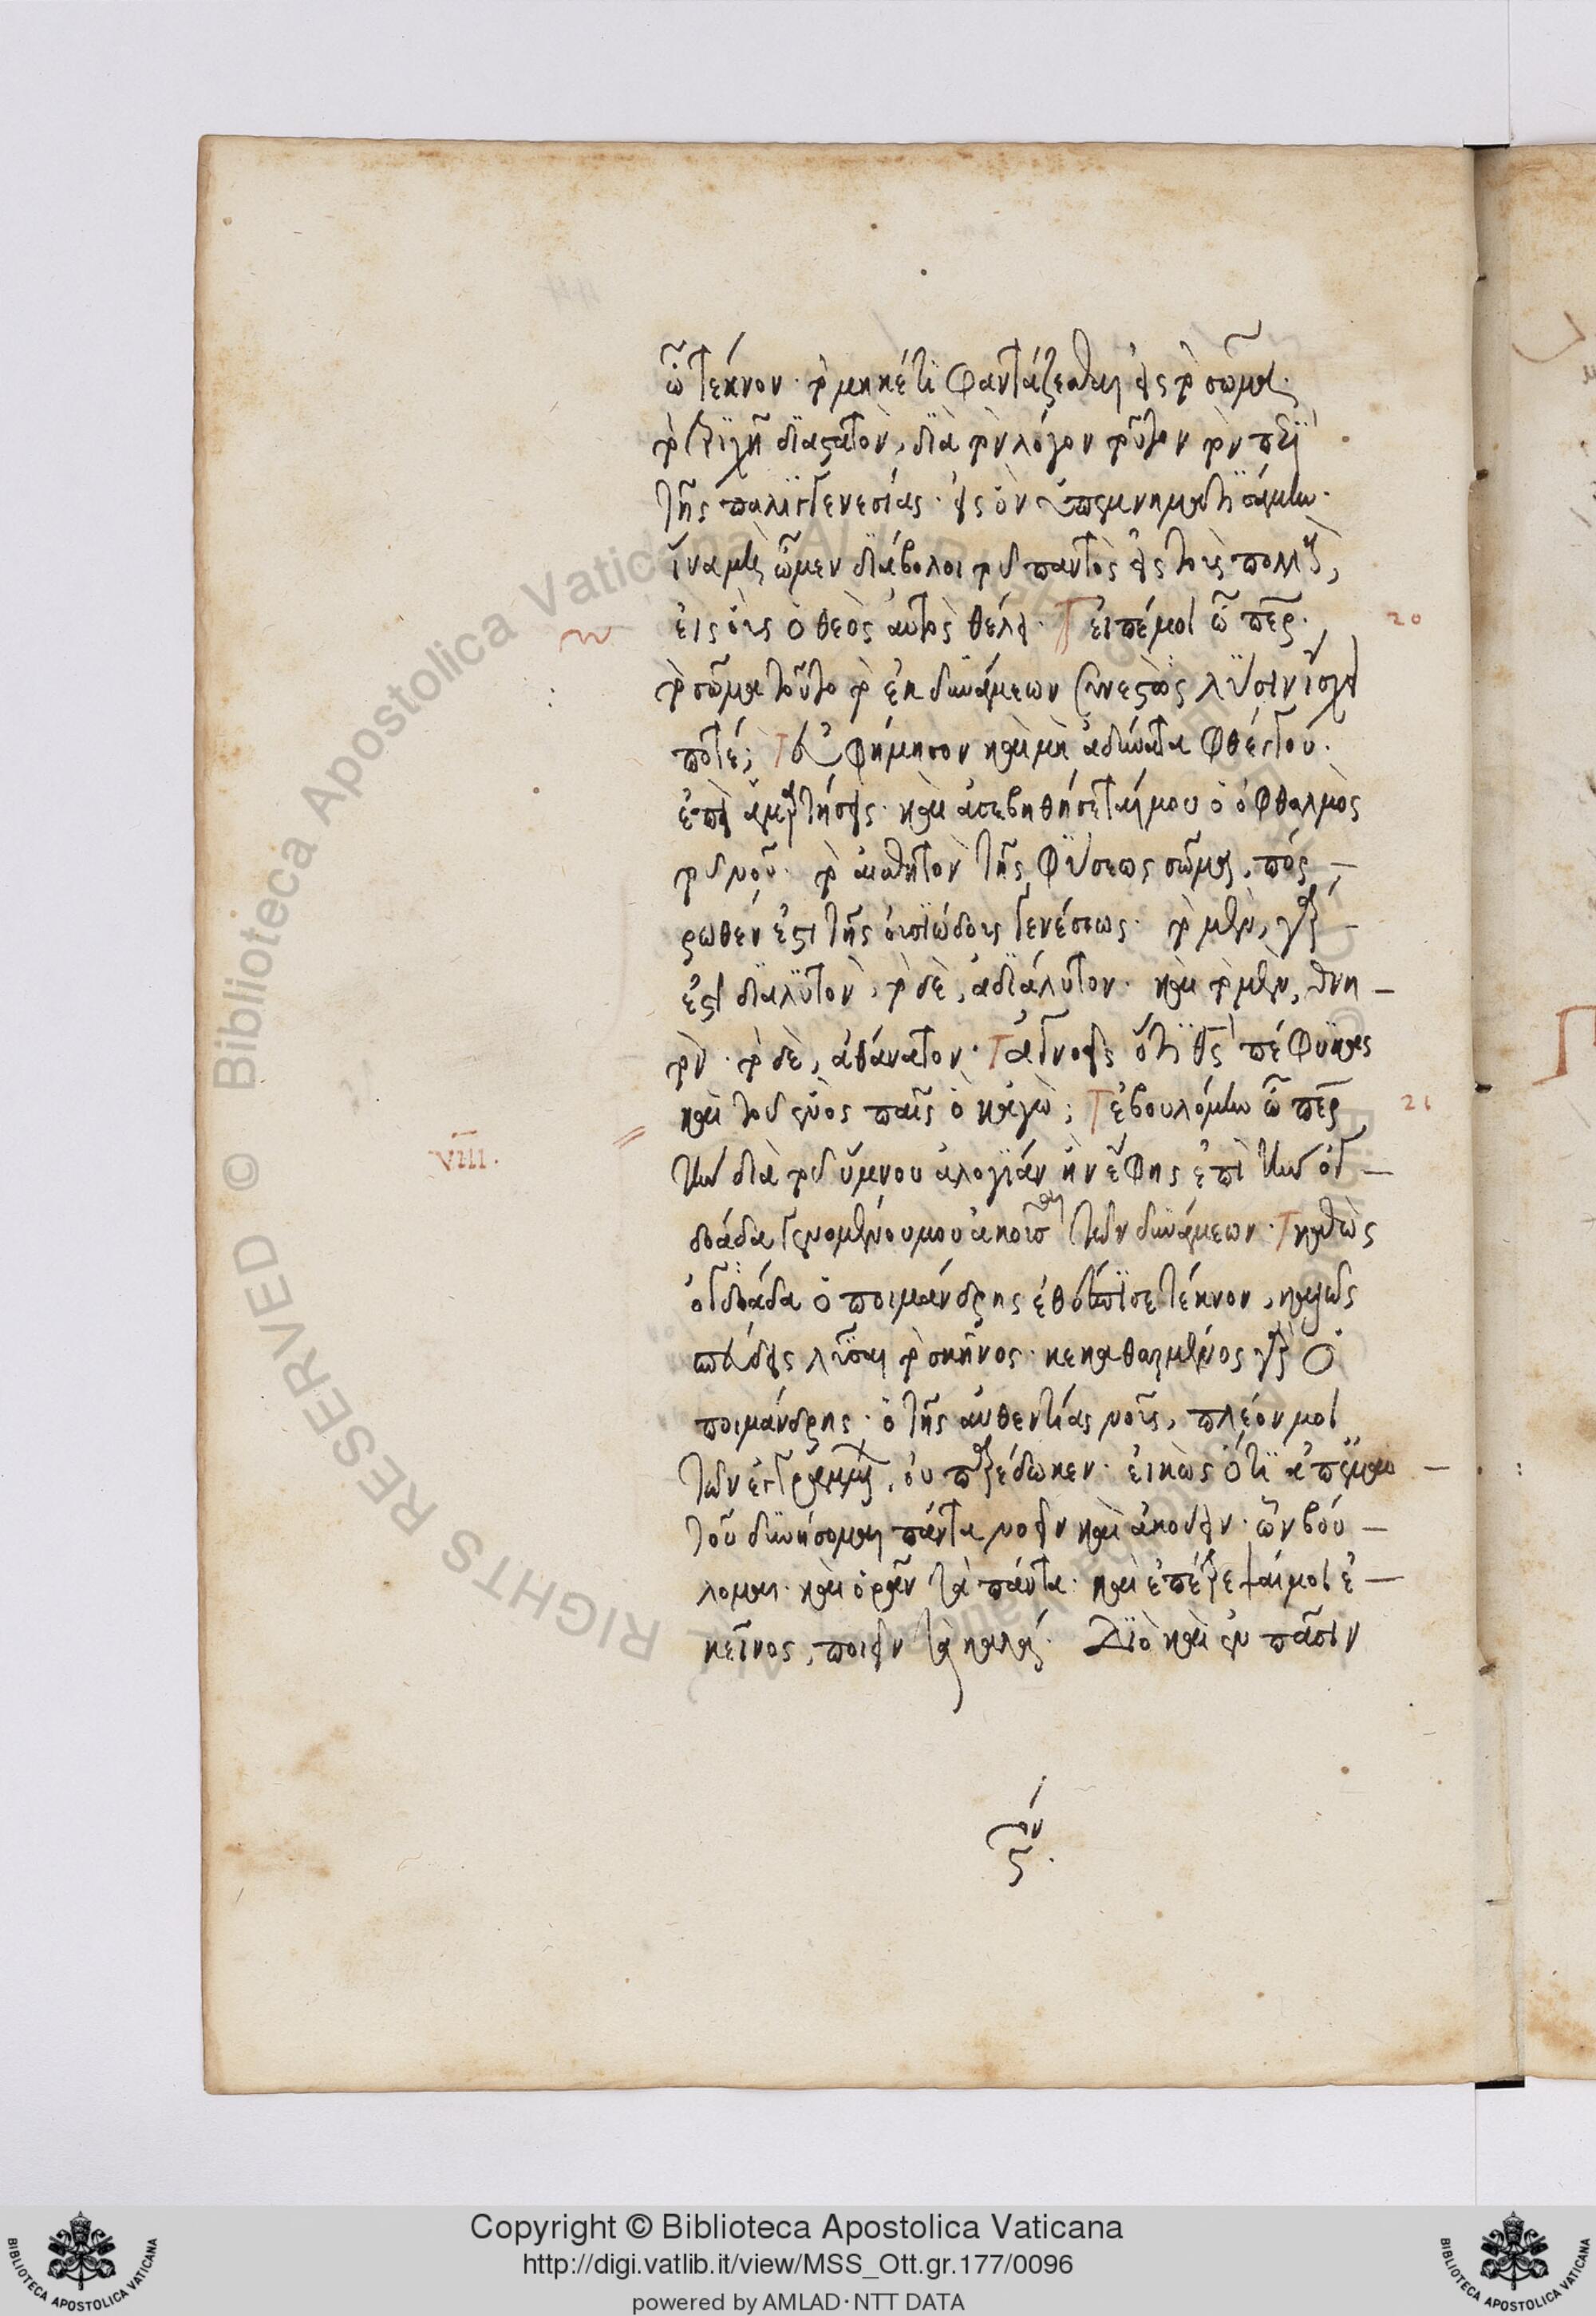 ὦ τέκνον· τὸ μηκέτι φαντάζεσθαι εἰς τὸ σῶμα
τὸ τριχῇ διαστατὸν, διὰ τὸν λόγον τοῦτον τὸν περὶ
τῆς παλιγγενεσίας· εἰς ὃν ὑπεμνηματισάμην·
ἵνα μὴ ὦμεν διάβολοι τοῦ παντὸς εἰς τοὺς πολλούς,
εἰς οὓς ὁ θεὸς αὐτὸς θέλει· εἰπέ μοι ὦ περ· 20
τὸ σῶμα τοῦτο τὸ ἐκ δυνάμεων συνεστὼς λύσιν ἴσχει
ποτέ; εὐφήμησον καὶ μὴ ἀδύνατα φθέγγου·
ἐπεὶ ἁμαρτήσεις· καὶ ἀσεβηθήσεταί μου ὁ ὀφθαλμὸς
τοῦ νοῦ· τὸ αἰσθητὸν τῆς φύσεως σῶμα, πόρ
ρωθέν ἐστι τῆς οὐσιώδους γενέσεως· τὸ μὲν, γάρ
ἐστι διαλυτὸν, τὸ δὲ, ἀδιάλυτον· καὶ τὸ μὲν, θνη
τὸν· τὸ δὲ, ἀθάνατον· ἀγνοεῖς ὅτι θς πέφυκας
καὶ τοῦ ἑνὸς παῖς ὃ κἀγὼ; ἐβουλόμην ὦ περ 21
VIII. τὴν διὰ τοῦ ὕμνου εὐλογίαν ἣν ἔφης ἐπὶ τὴν ὀγ
δοάδα γενομένου μου ἀκοῦσαι τῶν δυνάμεων· καθὼς
ὀγδοάδα ὁ ποιμάνδρης ἐθέσπισε τέκνον, καλῶς
σπεύδεις λῦσαι τὸ σκῆνος· κεκαθαρμένος γὰρ ὁ
ποιμάνδρης· ὁ τῆς αὐθεντίας νοῦς, πλέον μοι
τῶν ἐγγεγραμμένων, οὐ παρέδωκεν· εἰδὼς ὅτι ἀπ' ἐμαυ
τοῦ δυνήσομαι πάντα νοεῖν καὶ ἀκούειν· ὧν βού
λομαι· καὶ ὁρᾶν τὰ πάντα· καὶ ἐπέτρεψέ μοι ἐ
κεῖνος, ποιεῖν τὰ καλά· Διὸ καὶ ἐν πᾶσιν